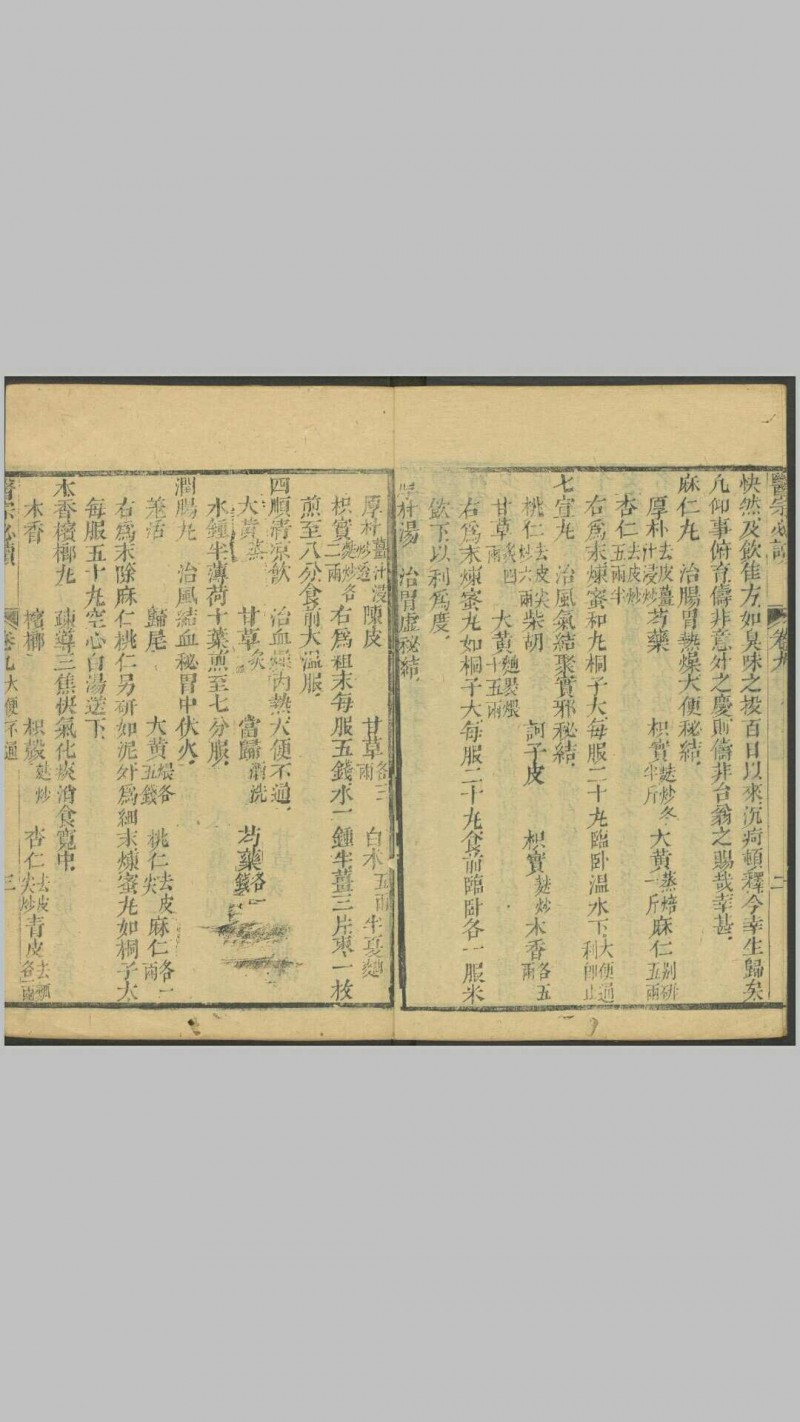 醫宗必讀 卷九 二
快然及飲佳方如臭味之投百日以來沉疴頓釋今幸生歸矣
凡仰事俯育儔非意外之慶則儔非台翁之賜哉幸甚
麻仁丸 治腸胃熱燥大便秘結
厚朴去皮薑汁浸炒 芍藥 枳實麩炒各半斤 大黃蒸焙一斤 麻仁別研五兩
杏仁去皮炒五兩半
右爲末煉蜜和丸桐子大每服二十丸臨卧温水下大便通利即止
七宣丸 治風氣結聚實邪秘結
桃仁去皮尖炒六兩 柴胡 訶子皮 枳實麩炒 木香各五兩
甘草炙四兩 大黃麵裹煨十五兩
右爲末煉蜜丸如桐子大每服二十丸食前臨卧各一服米
飲下以利爲度
厚朴湯 治胃虛秘結
厚朴薑汁浸炒透 陳皮 甘草各三兩 白术五兩 半夏麯
枳實麩炒各二兩 右爲粗末每服五錢水一鍾半薑三片棗一枚
煎至八分食前大温服
四順清凉飲 治血燥內熱大便不通
大黃蒸 甘草炙 當歸酒洗 芍藥各錢
水鍾半薄荷十葉煎至七分服
潤腸丸 治風結血秘胃中伏火
羌活 歸尾 大黃煨各五錢 桃仁去皮尖 麻仁各一兩
右爲末除麻仁桃仁另研如泥外爲細末煉蜜丸如桐子大
每服五十丸空心白湯送下
木香檳榔丸 疎導三焦快氣化痰消食寬中
木香 檳榔 枳殼麩炒 杏仁去皮尖炒 青皮去穰各一兩
醫宗必讀 卷九 大便不通 三